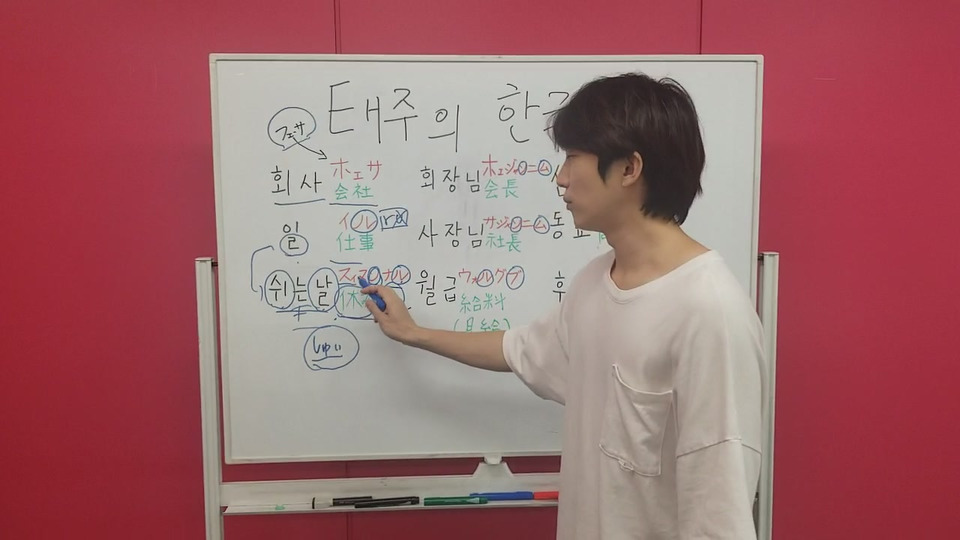 태주의 한
フェサ
회사 ホェサ 회장님 ホェジャンニム
会社 会長
일 イル
仕事 사장님 サジャンニム 동료
社長
쉬는 날 スィヌンナル 월급 ウォルグプ 후
休 給料
(月給)
しゅい